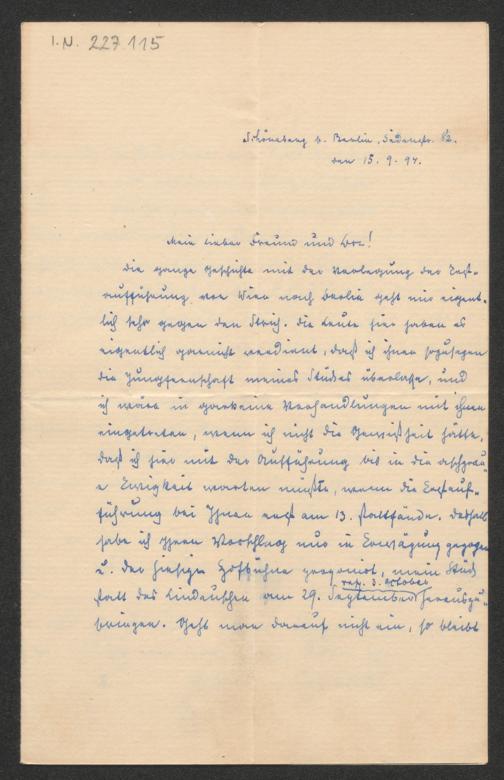 I.N. 227.115
Schöneberg b. Berlin, Sedanstr. 12.
den 15. 9. 97.
Mein lieber Freund und Dr.!
Die ganze Geschichte mit der Verlegung der Erst-
aufführung von Wien nach Berlin geht mir eigent-
lich sehr gegen den Strich. Die Leute hier haben es
eigentlich garnicht verdient, daß ich ihnen sozusagen
die Jungfernschaft meines Stückes überlasse, und
ich wäre in garkeine Verhandlungen mit ihnen
eingetreten, wenn ich nicht die Gewißheit hätte,
daß ich hier mit der Aufführung bis in die aschgrau-
e Ewigkeit warten müßte, wenn die Erstauf-
führung bei Ihnen erst am 13. stattfände. Deshalb
habe ich Ihren Vorschlag nur in Erwägung gezogen
u. der hiesigen Hofbühne proponirt, mein Stück
resp. 3. October
statt des Lindau'schen am 29. September herauszu-
bringen. Geht man darauf nicht ein, so bleibt